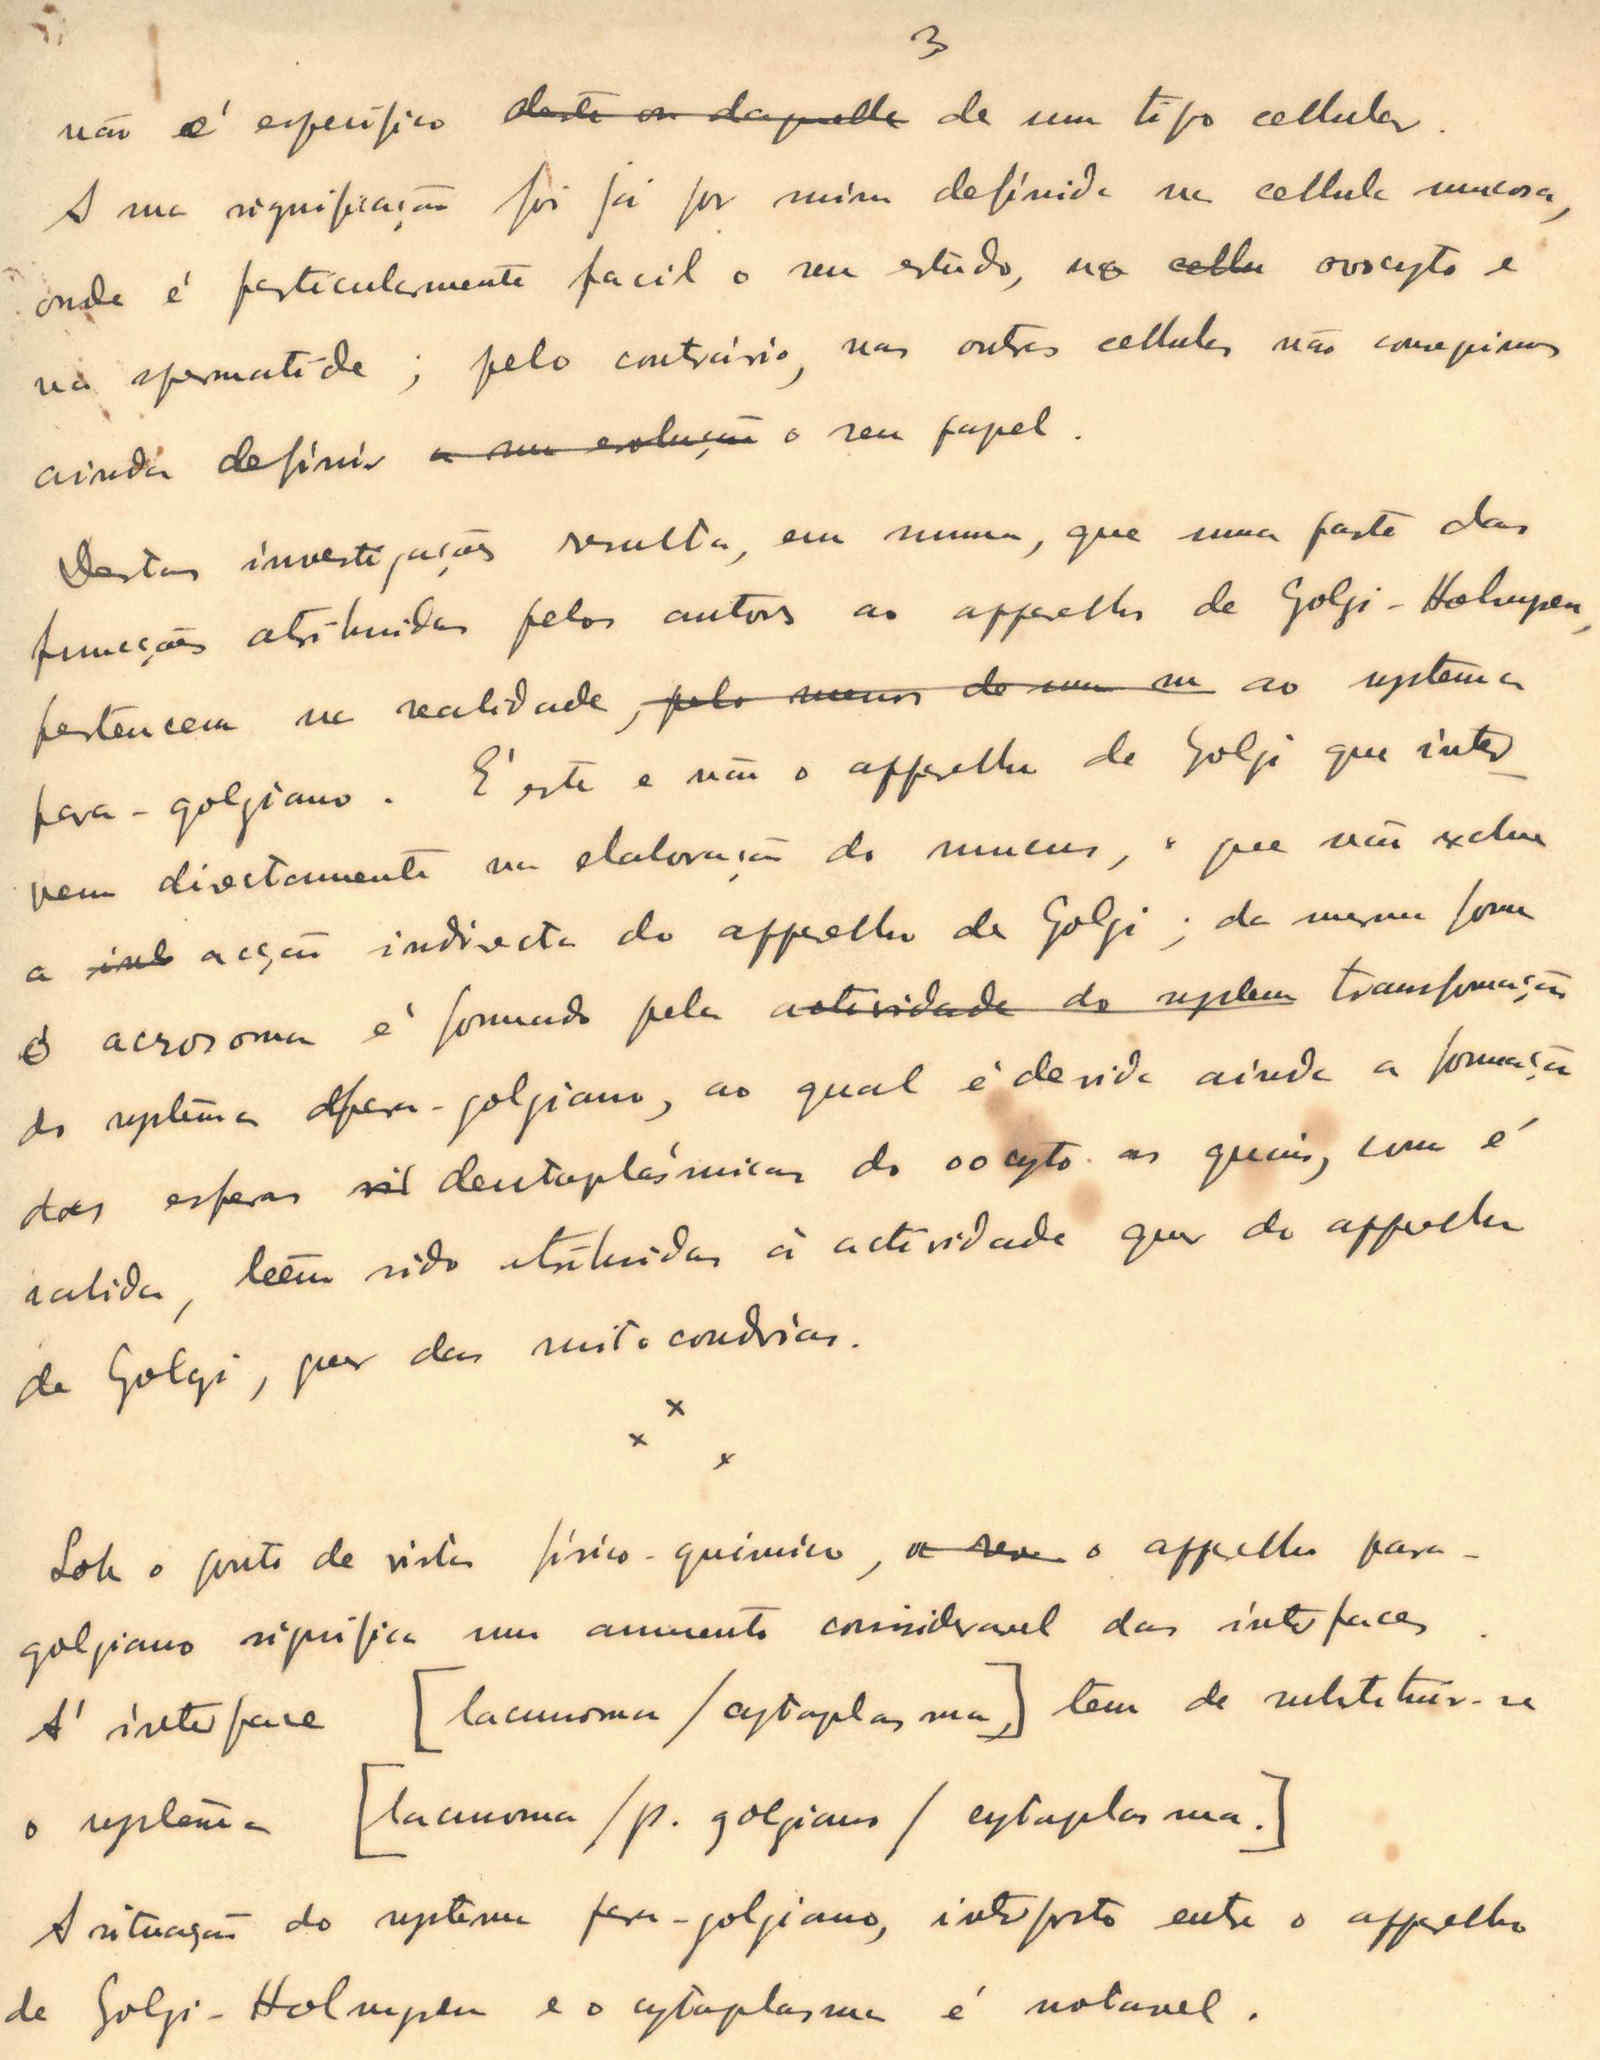 3
não é específico deste ou daquelle de um tipo cellular.
A sua significação foi já por mim definida na cellula mucosa,
onde é particularmente facil o seu estudo, no cellu ovocyto e
na spermatide ; pelo contrário, nas outras cellulas não conseguimos
ainda definir a sua evolução o seu papel.
Destas investigações resulta, em summa, que uma parte das
funcções atribuidas pelos autores ao apparelho de Golgi-Holmgren,
pertencem na realidade, pelo menos de um m ao systema
para-golgiano. É este e não o apparelho de Golgi que inter
vem directamente na elaboração do mucus, o que não exclue
a ind acção indirecta do apparelho de Golgi ; da mesma forma
o acrosoma é formado pela actividade do system transformação
do systêma para-golgiano, ao qual é devida ainda a formação
das esferas deutoplásmicas do oocyto as quais, com é
sabida, teêm sido atribuidas á actividade quer do apparelho
de Golgi, quer das mitocondrias.
x
x x
Sob o ponto de vista físico-químico, o apparelho para-
golgiano significa um aumento consideravel das interfaces.
A' interface [lacunoma / cytoplasma,] tem de substituir-se
o systêma [lacunoma / p. golgiano / cytoplasma.]
A situação do systema para-golgiano, interposto entre o apparelho
de Golgi-Holmgren e o cytoplasma é notavel.